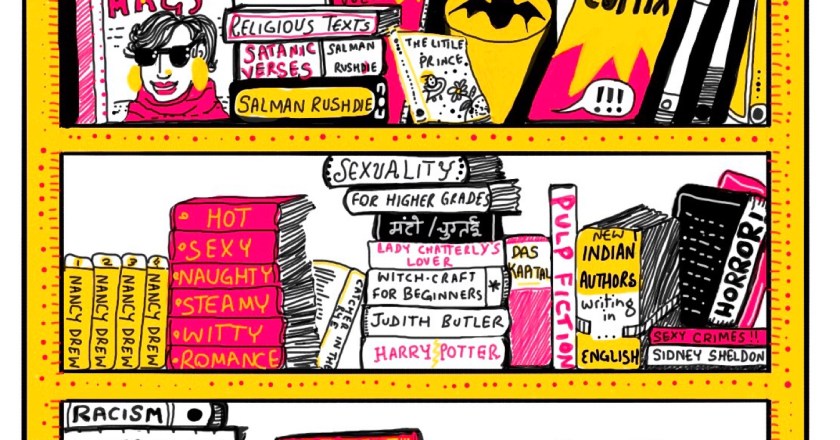 MAGS
RELIGIOUS TEXTS
SATANIC
VERSES
SALMAN
RUSHDIE
SALMAN RUSHDIE
THE LITTLE
PRINCE
!!!
1 NANCY DREW
2 NANCY DREW
3 NANCY DREW
4 NANCY DREW
HOT
SEXY
NAUGHTY
STEAMY
WITTY
ROMANCE
CATCHER IN THE
SEXUALITY
FOR HIGHER GRADES
मंटो /चुग्तई
LADY CHATTERLY'S
LOVER
WITCH-CRAFT
FOR BEGINNERS
*
JUDITH BUTLER
HARRY POTTER
DAS
PULP FICTION
NEW
INDIAN
AUTHORS
writing
in
ENGLISH
HORROR!
SEXY CRIMES!!
SIDNEY SHELDON
RACISM